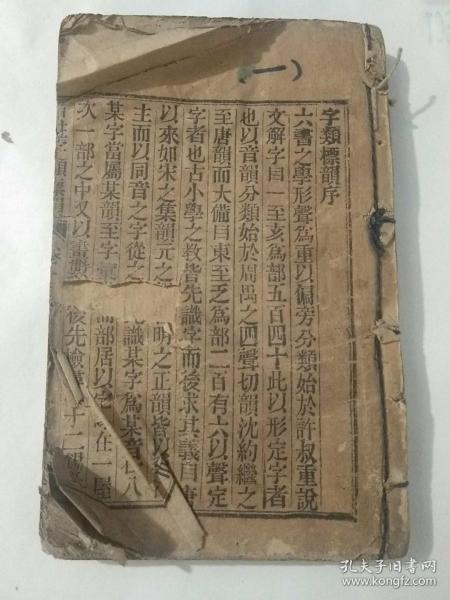 （一）
字類標韻序
六書之學形聲為重以偏旁分類始於許叔重說
文解字自一至亥為部五百四十此以形定字者
也以音韻分類始於周禺之四聲切韻沈約繼之
至唐韻而大備自東至乏為部二百有六以聲定
字者也古小學之教皆先識字而後求其義自唐
以來如宋之集韻元之 明之正韻皆以
主而以同音之字從之 識某字為某音
某字當屬某韻至字 部居以字 在一屋
次一部之中又以畫數 後先檢 子二
孔夫子旧书网
www.kongfz.com